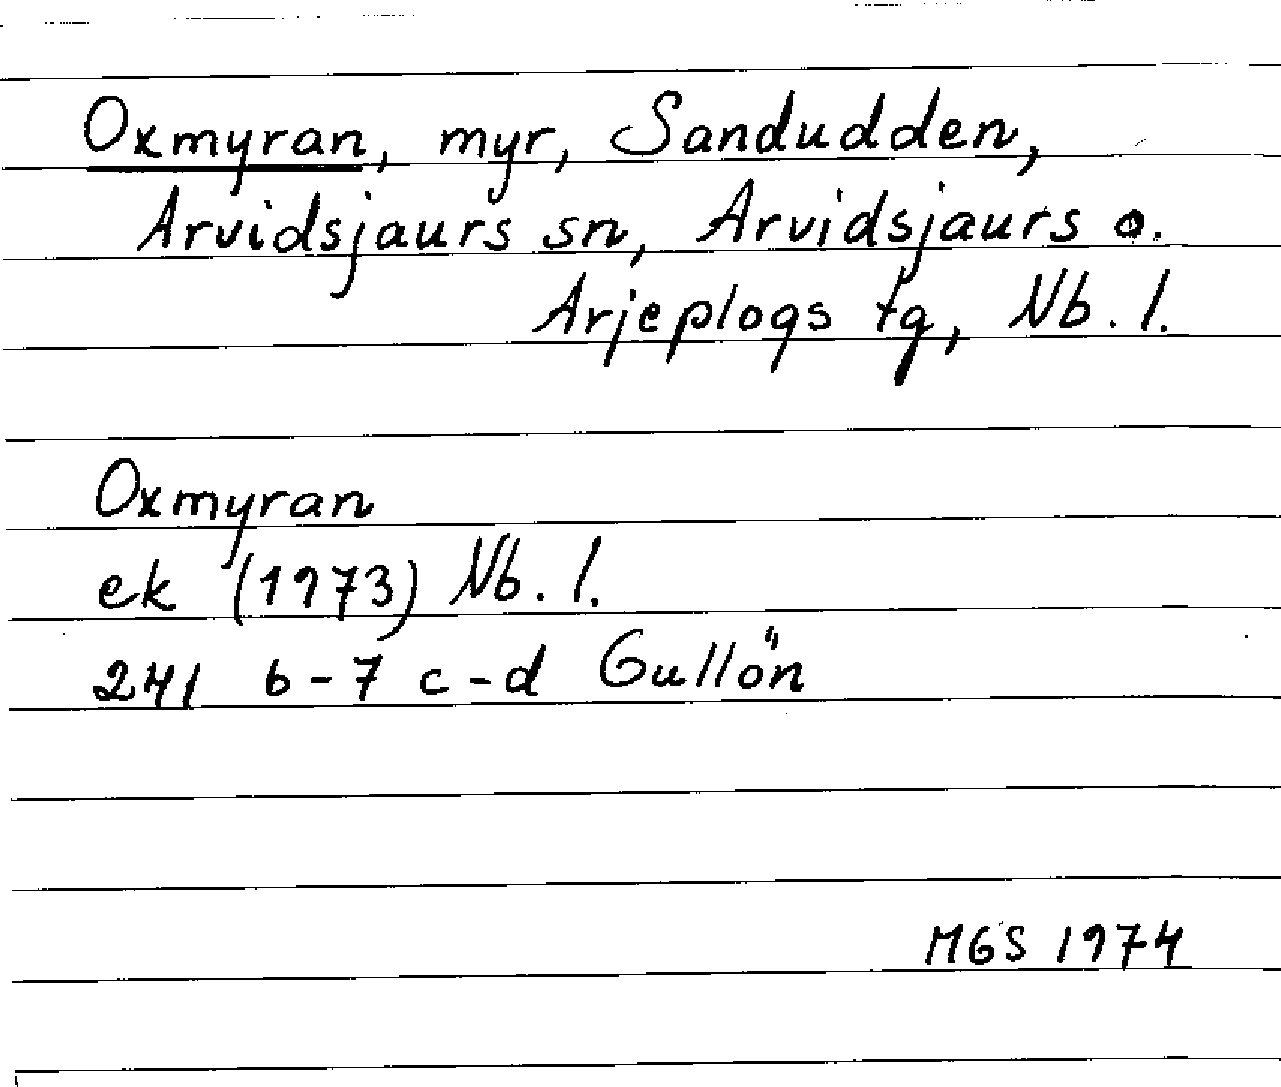 Oxmyran, myr, Sandudden,
Arvidsjaurs sn, Arvidsjaurs o.
Arjeplogs tg, Nb. l.
Oxmyran
ek (1973) Nb. l.
241 b-7 c-d Gullön
MGS 1974